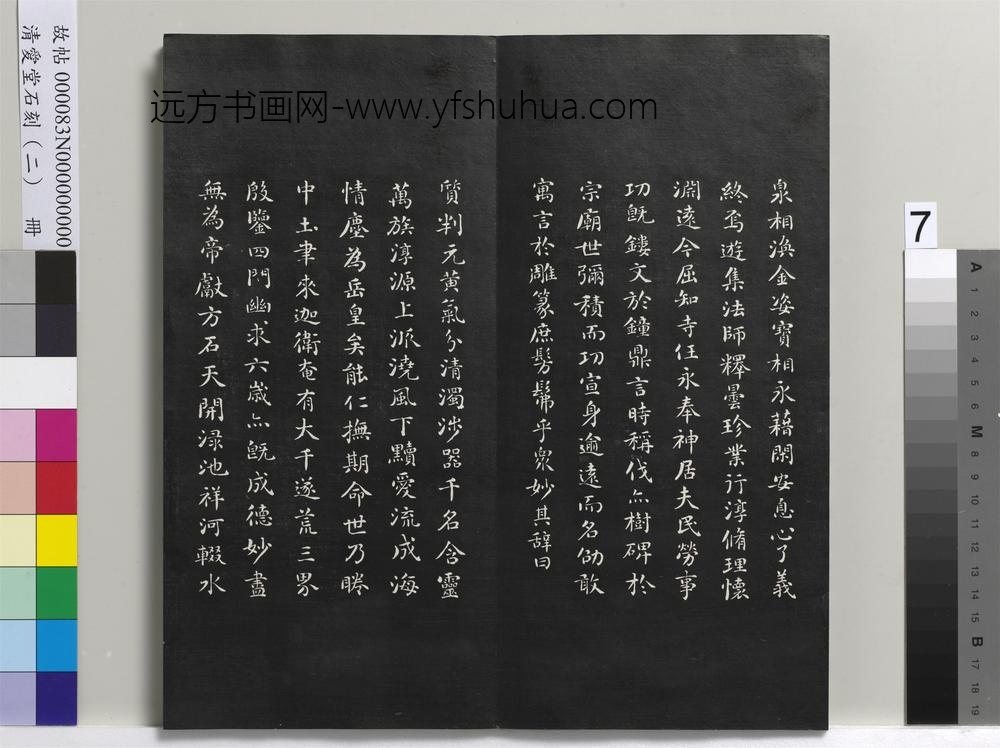 泉相渙金姿寶相永藉閑安息心了義
終焉遊集法師釋曇珍業行淳脩理懷
淵遠今屈知寺任永奉神居夫民勞事
功既鏤文於鐘鼎言時稱伐亦樹碑於
宗廟世彌積而功宣身逾遠而名劭敢
寓言於雕篆庶髣髴乎衆妙其辭曰
質判元黄氣分清濁涉器千名含靈
萬族淳源上派澆風下黷愛流成海
情塵為岳皇矣能仁撫期命世乃睠
中土聿來迦衛奄有大千遂荒三界
殷鑒四門幽求六歲亦既成德妙盡
無為帝獻方石天開渌池祥河輟水
远方书画网-www.yfshuhua.com
故帖 000083N000000000
清愛堂石刻（二） 冊
7
A 1 2 3 4 5 6 M 8 9 10 11 12 13 14 15 B 17 18 19